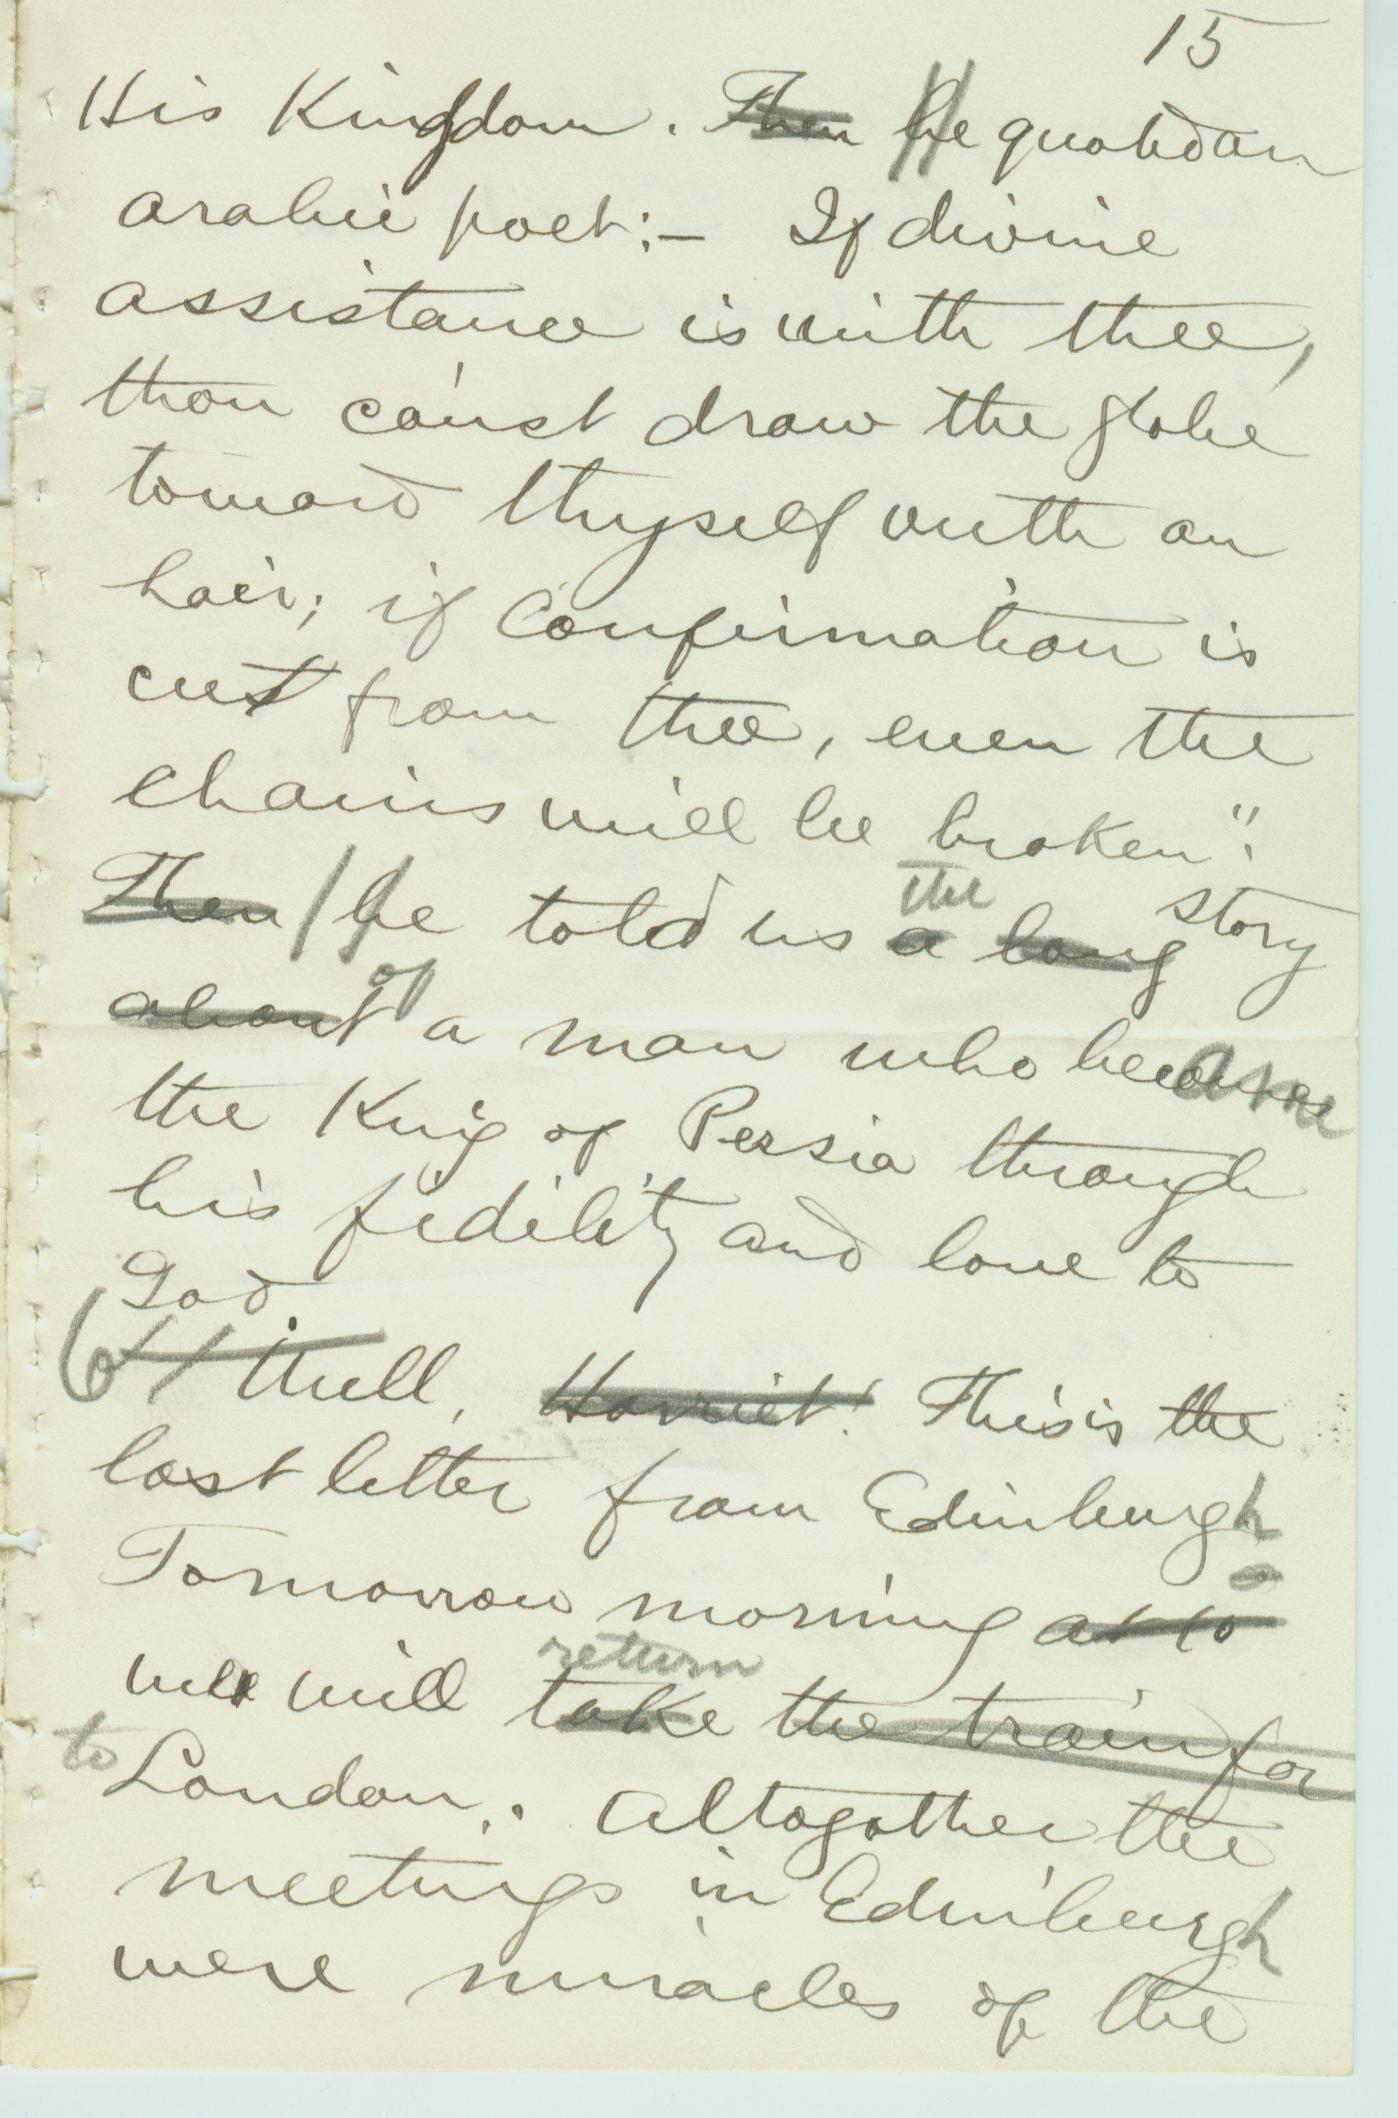 15
His Kingdom. Then He quoted an
arabic poet:- If divine
assistance is with thee,
thou can'st draw the globe
toward thyself with an
hair; if Confirmation is
cut from thee, even the
chains will be broken".
the
Then He told us a long story
of
about a man who became
the King of Persia through
his fidelity and love to
God.
Well, Harriet! This is the
last letter from Edinburgh
Tomorrow morning at 10
return
we will take the train for
to London. Altogether the
meetings in Edinburgh
were miracles of the